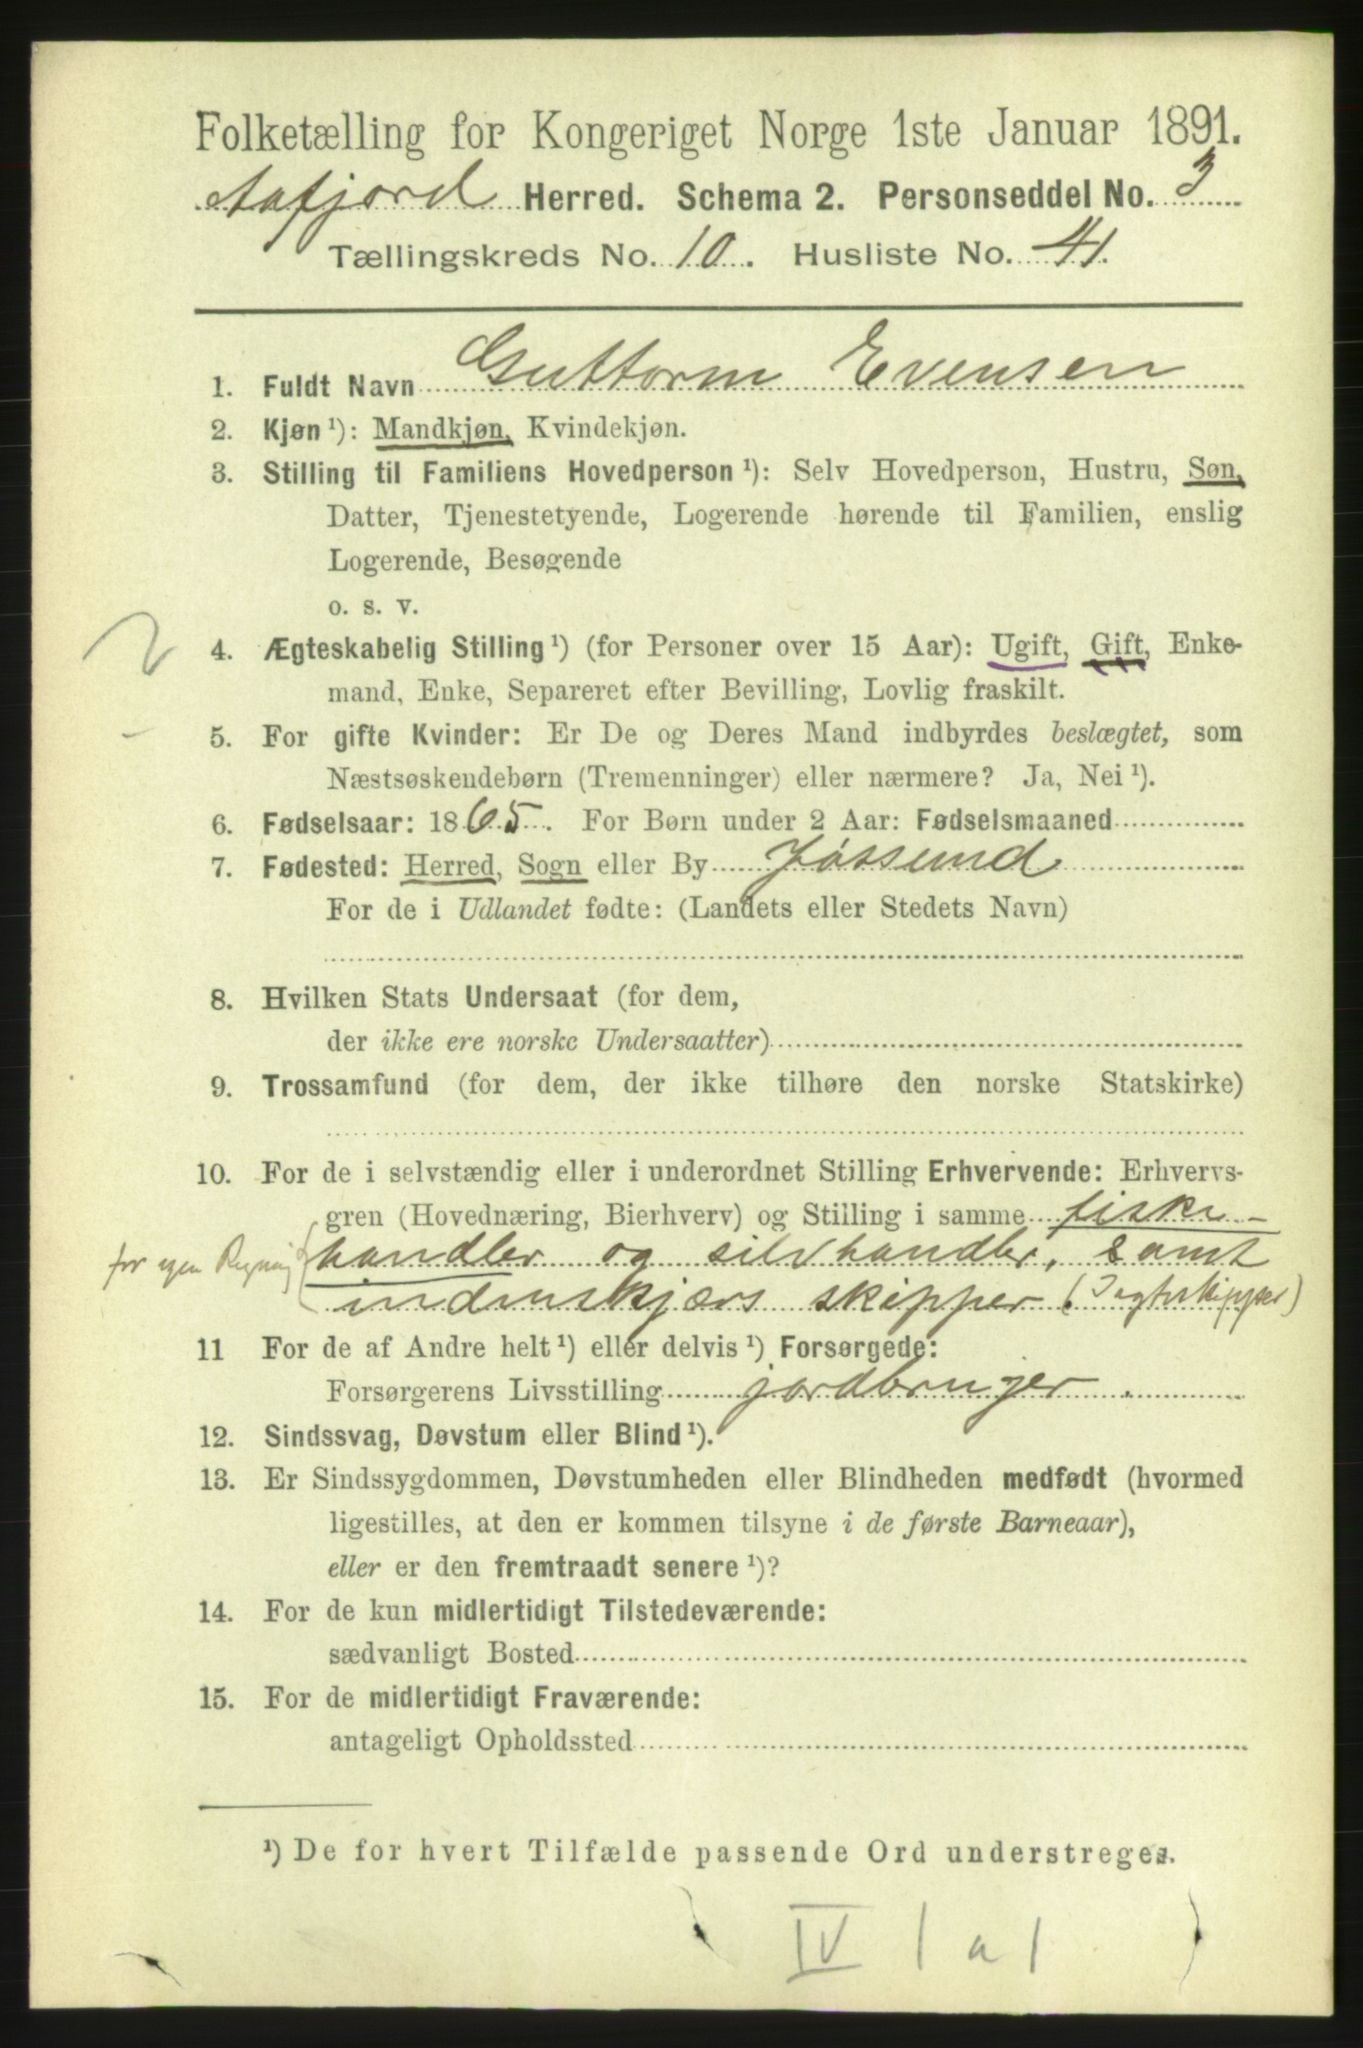 Folketælling for Kongeriget Norge 1ste Januar 1891.
Aafjord Herred. Schema 2. Personseddel No. 3
Tællingskreds No. 10. Husliste No. 41.
1. Fuldt Navn Guttorm Evensen
2. Kjøn ¹): Mandkjøn, Kvindekjøn.
3. Stilling til Familiens Hovedperson ¹): Selv Hovedperson, Hustru, Søn,
Datter, Tjenestetyende, Logerende hørende til Familien, enslig
Logerende, Besøgende
o. s. v.
2
4. Ægteskabelig Stilling ¹) (for Personer over 15 Aar): Ugift, Gift, Enke-
mand, Enke, Separeret efter Bevilling, Lovlig fraskilt.
5. For gifte Kvinder: Er De og Deres Mand indbyrdes beslægtet, som
Næstsøskendebørn (Tremenninger) eller nærmere? Ja, Nei ¹).
6. Fødselsaar: 1865. For Børn under 2 Aar: Fødselsmaaned
7. Fødested: Herred, Sogn eller By Jøssund
For de i Udlandet fødte: (Landets eller Stedets Navn)
8. Hvilken Stats Undersaat (for dem,
der ikke ere norske Undersaatter)
9. Trossamfund (for dem, der ikke tilhøre den norske Statskirke)
10. For de i selvstændig eller i underordnet Stilling Erhvervende: Erhvervs-
gren (Hovednæring, Bierhverv) og Stilling i samme fiske-
for egen Regning handler og sildhandler, samt
indenskjærs skipper. (Jagteskipper)
11 For de af Andre helt ¹) eller delvis ¹) Forsørgede:
Forsørgerens Livsstilling jordbruger.
12. Sindssvag, Døvstum eller Blind ¹).
13. Er Sindssygdommen, Døvstumheden eller Blindheden medfødt (hvormed
ligestilles, at den er kommen tilsyne i de første Barneaar),
eller er den fremtraadt senere ¹)?
14. For de kun midlertidigt Tilstedeværende:
sædvanligt Bosted
15. For de midlertidigt Fraværende:
antageligt Opholdssted
¹) De for hvert Tilfælde passende Ord understreges.
IV 1 a 1